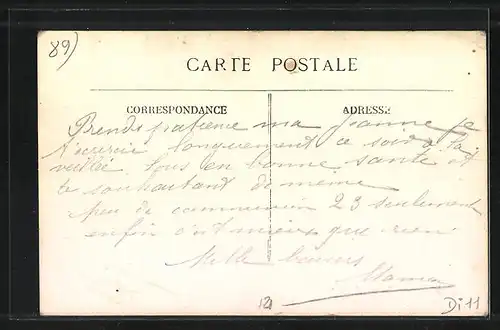 89)
CARTE POSTALE
CORRESPONDANCE
ADRESSE
Prends patience ma Jeanne je
t'ecrirai longuement ce soir à la
veillée. tous en bonne santé et
te souhaitant de même
peu de communion 23 seulement
enfin c'est mieux que rien
Mille baisers
Maman
12
Di11